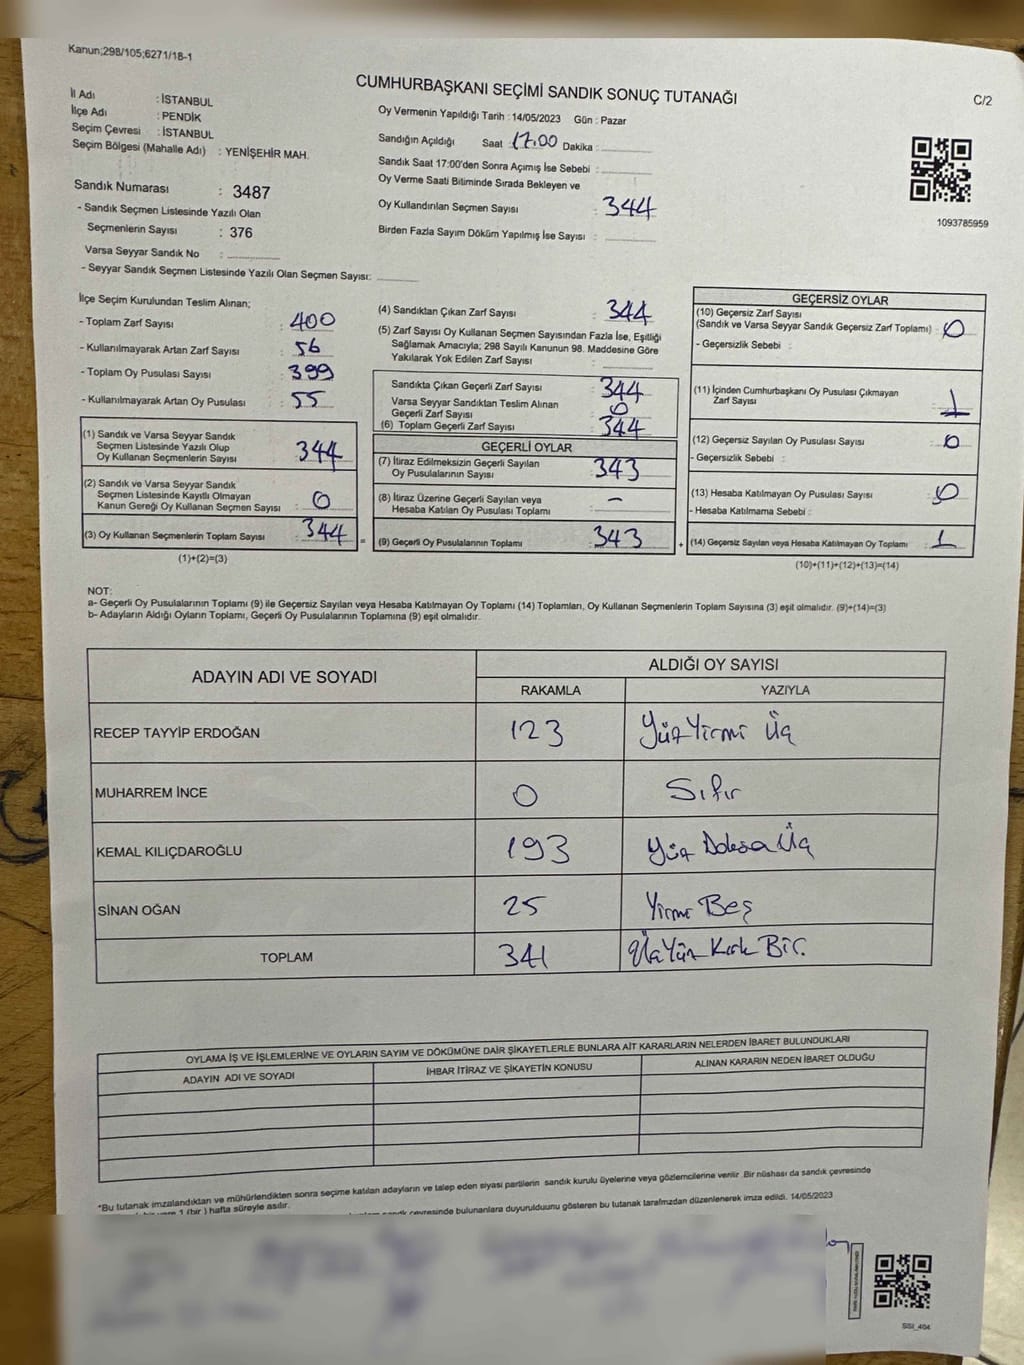 Kanun;298/105;6271/18-1
CUMHURBAŞKANI SEÇİMİ SANDIK SONUÇ TUTANAĞI
C/2
İl Adı : İSTANBUL
İlçe Adı : PENDİK
Seçim Çevresi : İSTANBUL
Seçim Bölgesi (Mahalle Adı) : YENİŞEHİR MAH.
Sandık Numarası : 3487
- Sandık Seçmen Listesinde Yazılı Olan
Seçmenlerin Sayısı : 376
Varsa Seyyar Sandık No :
- Seyyar Sandık Seçmen Listesinde Yazılı Olan Seçmen Sayısı:
Oy Vermenin Yapıldığı Tarih : 14/05/2023 Gün : Pazar
Sandığın Açıldığı Saat : 17.00 Dakika :
Sandık Saat 17:00'den Sonra Açımış İse Sebebi :
Oy Verme Saati Bitiminde Sırada Bekleyen ve
Oy Kullandırılan Seçmen Sayısı : 344
Birden Fazla Sayım Döküm Yapılmış İse Sayısı :
1093785959
İlçe Seçim Kurulundan Teslim Alınan;
- Toplam Zarf Sayısı : 400
- Kullanılmayarak Artan Zarf Sayısı : 56
- Toplam Oy Pusulası Sayısı : 399
- Kullanılmayarak Artan Oy Pusulası : 55
(1) Sandık ve Varsa Seyyar Sandık
Seçmen Listesinde Yazılı Olup
Oy Kullanan Seçmenlerin Sayısı : 344
(2) Sandık ve Varsa Seyyar Sandık
Seçmen Listesinde Kayıtlı Olmayan
Kanun Gereği Oy Kullanan Seçmen Sayısı : 0
(3) Oy Kullanan Seçmenlerin Toplam Sayısı : 344 =
(1)+(2)=(3)
(4) Sandıktan Çıkan Zarf Sayısı : 344
(5) Zarf Sayısı Oy Kullanan Seçmen Sayısından Fazla İse, Eşitliği
Sağlamak Amacıyla; 298 Sayılı Kanunun 98. Maddesine Göre
Yakılarak Yok Edilen Zarf Sayısı :
Sandıkta Çıkan Geçerli Zarf Sayısı : 344
Varsa Seyyar Sandıktan Teslim Alınan
Geçerli Zarf Sayısı : 0
(6) Toplam Geçerli Zarf Sayısı : 344
GEÇERLİ OYLAR
(7) İtiraz Edilmeksizin Geçerli Sayılan
Oy Pusulalarının Sayısı : 343
(8) İtiraz Üzerine Geçerli Sayılan veya
Hesaba Katılan Oy Pusulası Toplamı : –
(9) Geçerli Oy Pusulalarının Toplamı : 343 +
GEÇERSİZ OYLAR
(10) Geçersiz Zarf Sayısı
(Sandık ve Varsa Seyyar Sandık Geçersiz Zarf Toplamı) : 0
- Geçersizlik Sebebi :
(11) İçinden Cumhurbaşkanı Oy Pusulası Çıkmayan
Zarf Sayısı : 1
(12) Geçersiz Sayılan Oy Pusulası Sayısı : 0
- Geçersizlik Sebebi :
(13) Hesaba Katılmayan Oy Pusulası Sayısı : 0
- Hesaba Katılmama Sebebi :
(14) Geçersiz Sayılan veya Hesaba Katılmayan Oy Toplamı : 1
(10)+(11)+(12)+(13)=(14)
NOT:
a- Geçerli Oy Pusulalarının Toplamı (9) ile Geçersiz Sayılan veya Hesaba Katılmayan Oy Toplamı (14) Toplamları, Oy Kullanan Seçmenlerin Toplam Sayısına (3) eşit olmalıdır. (9)+(14)=(3)
b- Adayların Aldığı Oyların Toplamı, Geçerli Oy Pusulalarının Toplamına (9) eşit olmalıdır.
ADAYIN ADI VE SOYADI ALDIĞI OY SAYISI
RAKAMLA YAZIYLA
RECEP TAYYİP ERDOĞAN 123 Yüz Yirmi Üç
MUHARREM İNCE 0 Sıfır
KEMAL KILIÇDAROĞLU 193 Yüz Doksa Üç
SİNAN OĞAN 25 Yirmi Beş
TOPLAM 341 Üç Yüz Kırk Bir.
OYLAMA İŞ VE İŞLEMLERİNE VE OYLARIN SAYIM VE DÖKÜMÜNE DAİR ŞİKAYETLERLE BUNLARA AİT KARARLARIN NELERDEN İBARET BULUNDUKLARI
ADAYIN ADI VE SOYADI İHBAR İTİRAZ VE ŞİKAYETİN KONUSU ALINAN KARARIN NEDEN İBARET OLDUĞU
*Bu tutanak imzalandıktan ve mühürlendikten sonra seçime katılan adayların ve talep eden siyasi partilerin sandık kurulu üyelerine veya gözlemcilerine verilir .Bir nüshası da sandık çevresinde
1 (bir ) hafta süreyle asılır.
sandık çevresinde bulunanlara duyurulduunu gösteren bu tutanak tarafımzdan düzenlenerek imza edildi. 14/05/2023
SSI_404